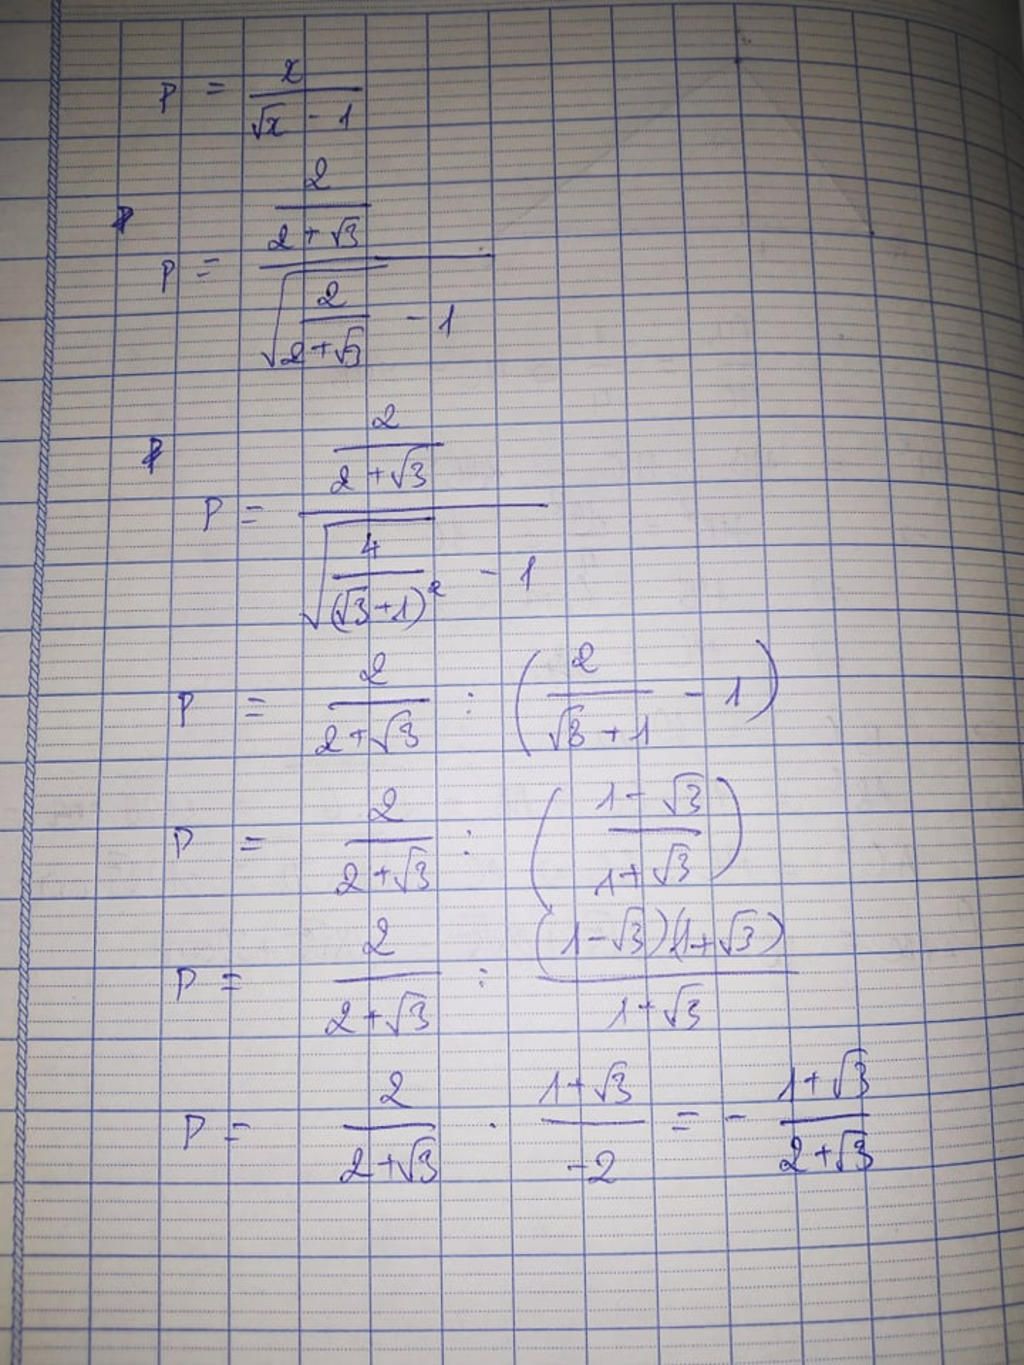 P = x / (√x - 1)
P = (2 / (2 + √3)) / (√(2 / (2 + √3)) - 1)
P = (2 / (2 + √3)) / (√(4 / (√3 + 1)²) - 1)
P = 2 / (2 + √3) : (2 / (√3 + 1) - 1)
P = 2 / (2 + √3) : ((1 - √3) / (1 + √3))
P = 2 / (2 + √3) : (1 - √3)(1 + √3) / (1 + √3)
P = 2 / (2 + √3) . (1 + √3) / -2 = - (1 + √3) / (2 + √3)